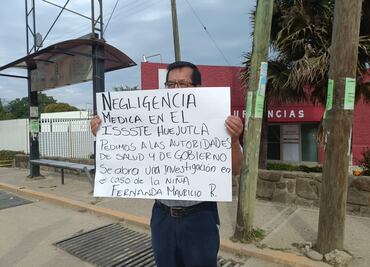 NEGLIGENCIA
MEDICA EN EL
ISSSTE HUEJUTLA
PEDIMOS A LAS AUTORIDADES
DE SALUD Y DE GOBIERNO
SE ABRA UNA INVESTIGACIÓN EN
EL CASO DE LA NIÑA
FERNANDA MAURICIO R.
URGENCIAS